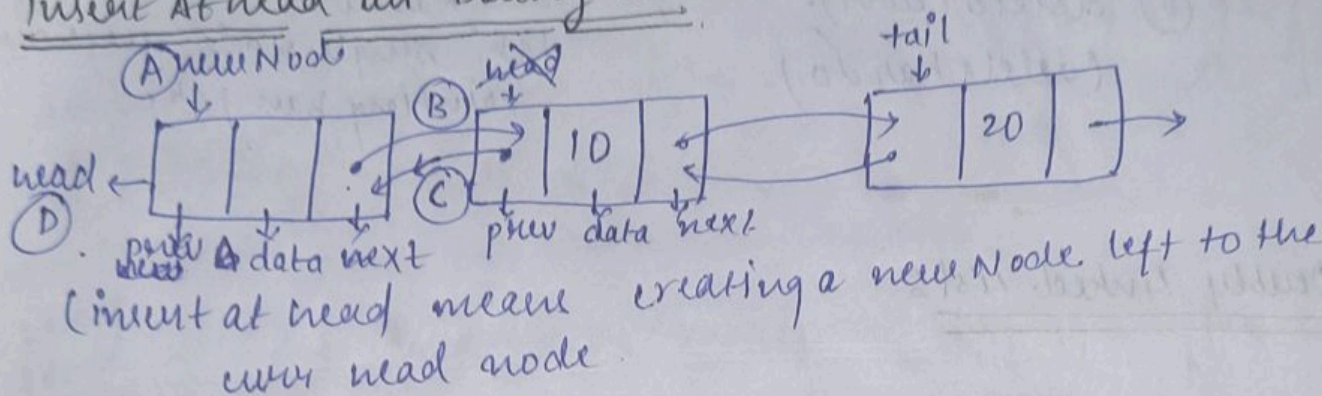 Insert At head in
(A) newNode
head
tail
(B)
10
20
head
(D)
(C)
prev data next
prev data next
(insert at head means creating a newNode left to the
curr head node.